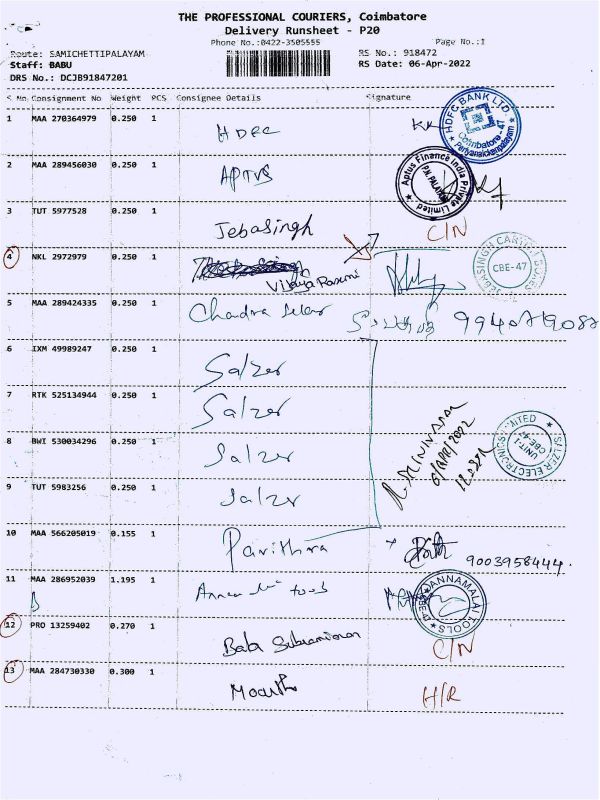 THE PROFESSIONAL COURIERS, Coimbatore
Delivery Runsheet - P20
Phone No.:0422-3505555
Page No.:1
Route: SAMICHETTIPALAYAM
RS No.: 918472
Staff: BABU
RS Date: 06-Apr-2022
DRS No.: DCJB91847201
S No Consignment No Weight PCS Consignee Details Signature
1 MAA 270364979 0.250 1 HDFC
HDFC BANK LTD. Coimbatore-47 Periyanaickenpalayam
2 MAA 289456030 0.250 1 APTUS
Aptus Finance India Private Limited P.N. PALAYAM
3 TUT 5977528 0.250 1 Jebasingh C/N
4 NKL 2972979 0.250 1 Vijaya Parimi
JEBASINGH CARTON BOXES CBE-47
5 MAA 289424335 0.250 1 Chandra
6 IXM 49989247 0.250 1 Salzer
7 RTK 525134944 0.250 1 Salzer
8 BWI 530034296 0.250 1 Salzer
R. SRINIVASAN
6/APR/2022
SALZER ELECTRONICS LIMITED UNIT-I CBE-47
9 TUT 5983256 0.250 1 Salzer
10 MAA 566205019 0.155 1 Pavithra 9003958444.
11 MAA 286952039 1.195 1 tools
ANNAMALAI TOOLS CBE-47
12 PRO 13259402 0.270 1 Bala Subramanian C/N
13 MAA 284730330 0.300 1 H/R